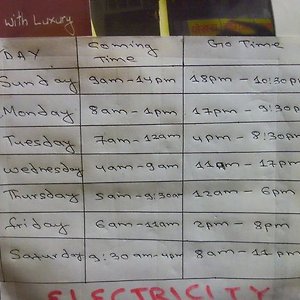 With Luxury
DAY Coming Time Go Time
Sunday 9am-14pm 18pm - 10:30pm
Monday 8am-1pm 17pm - 9:30p
Tuesday 7am-12am 4pm - 8:30pm
Wednesday 4am-9am 11am - 17pm
Thursday 5am-9:30am 12am - 6pm
friday 6am-11am 2pm - 8pm
Saturday 9:30am-4pm 8am-11pm
ELECTRICITY